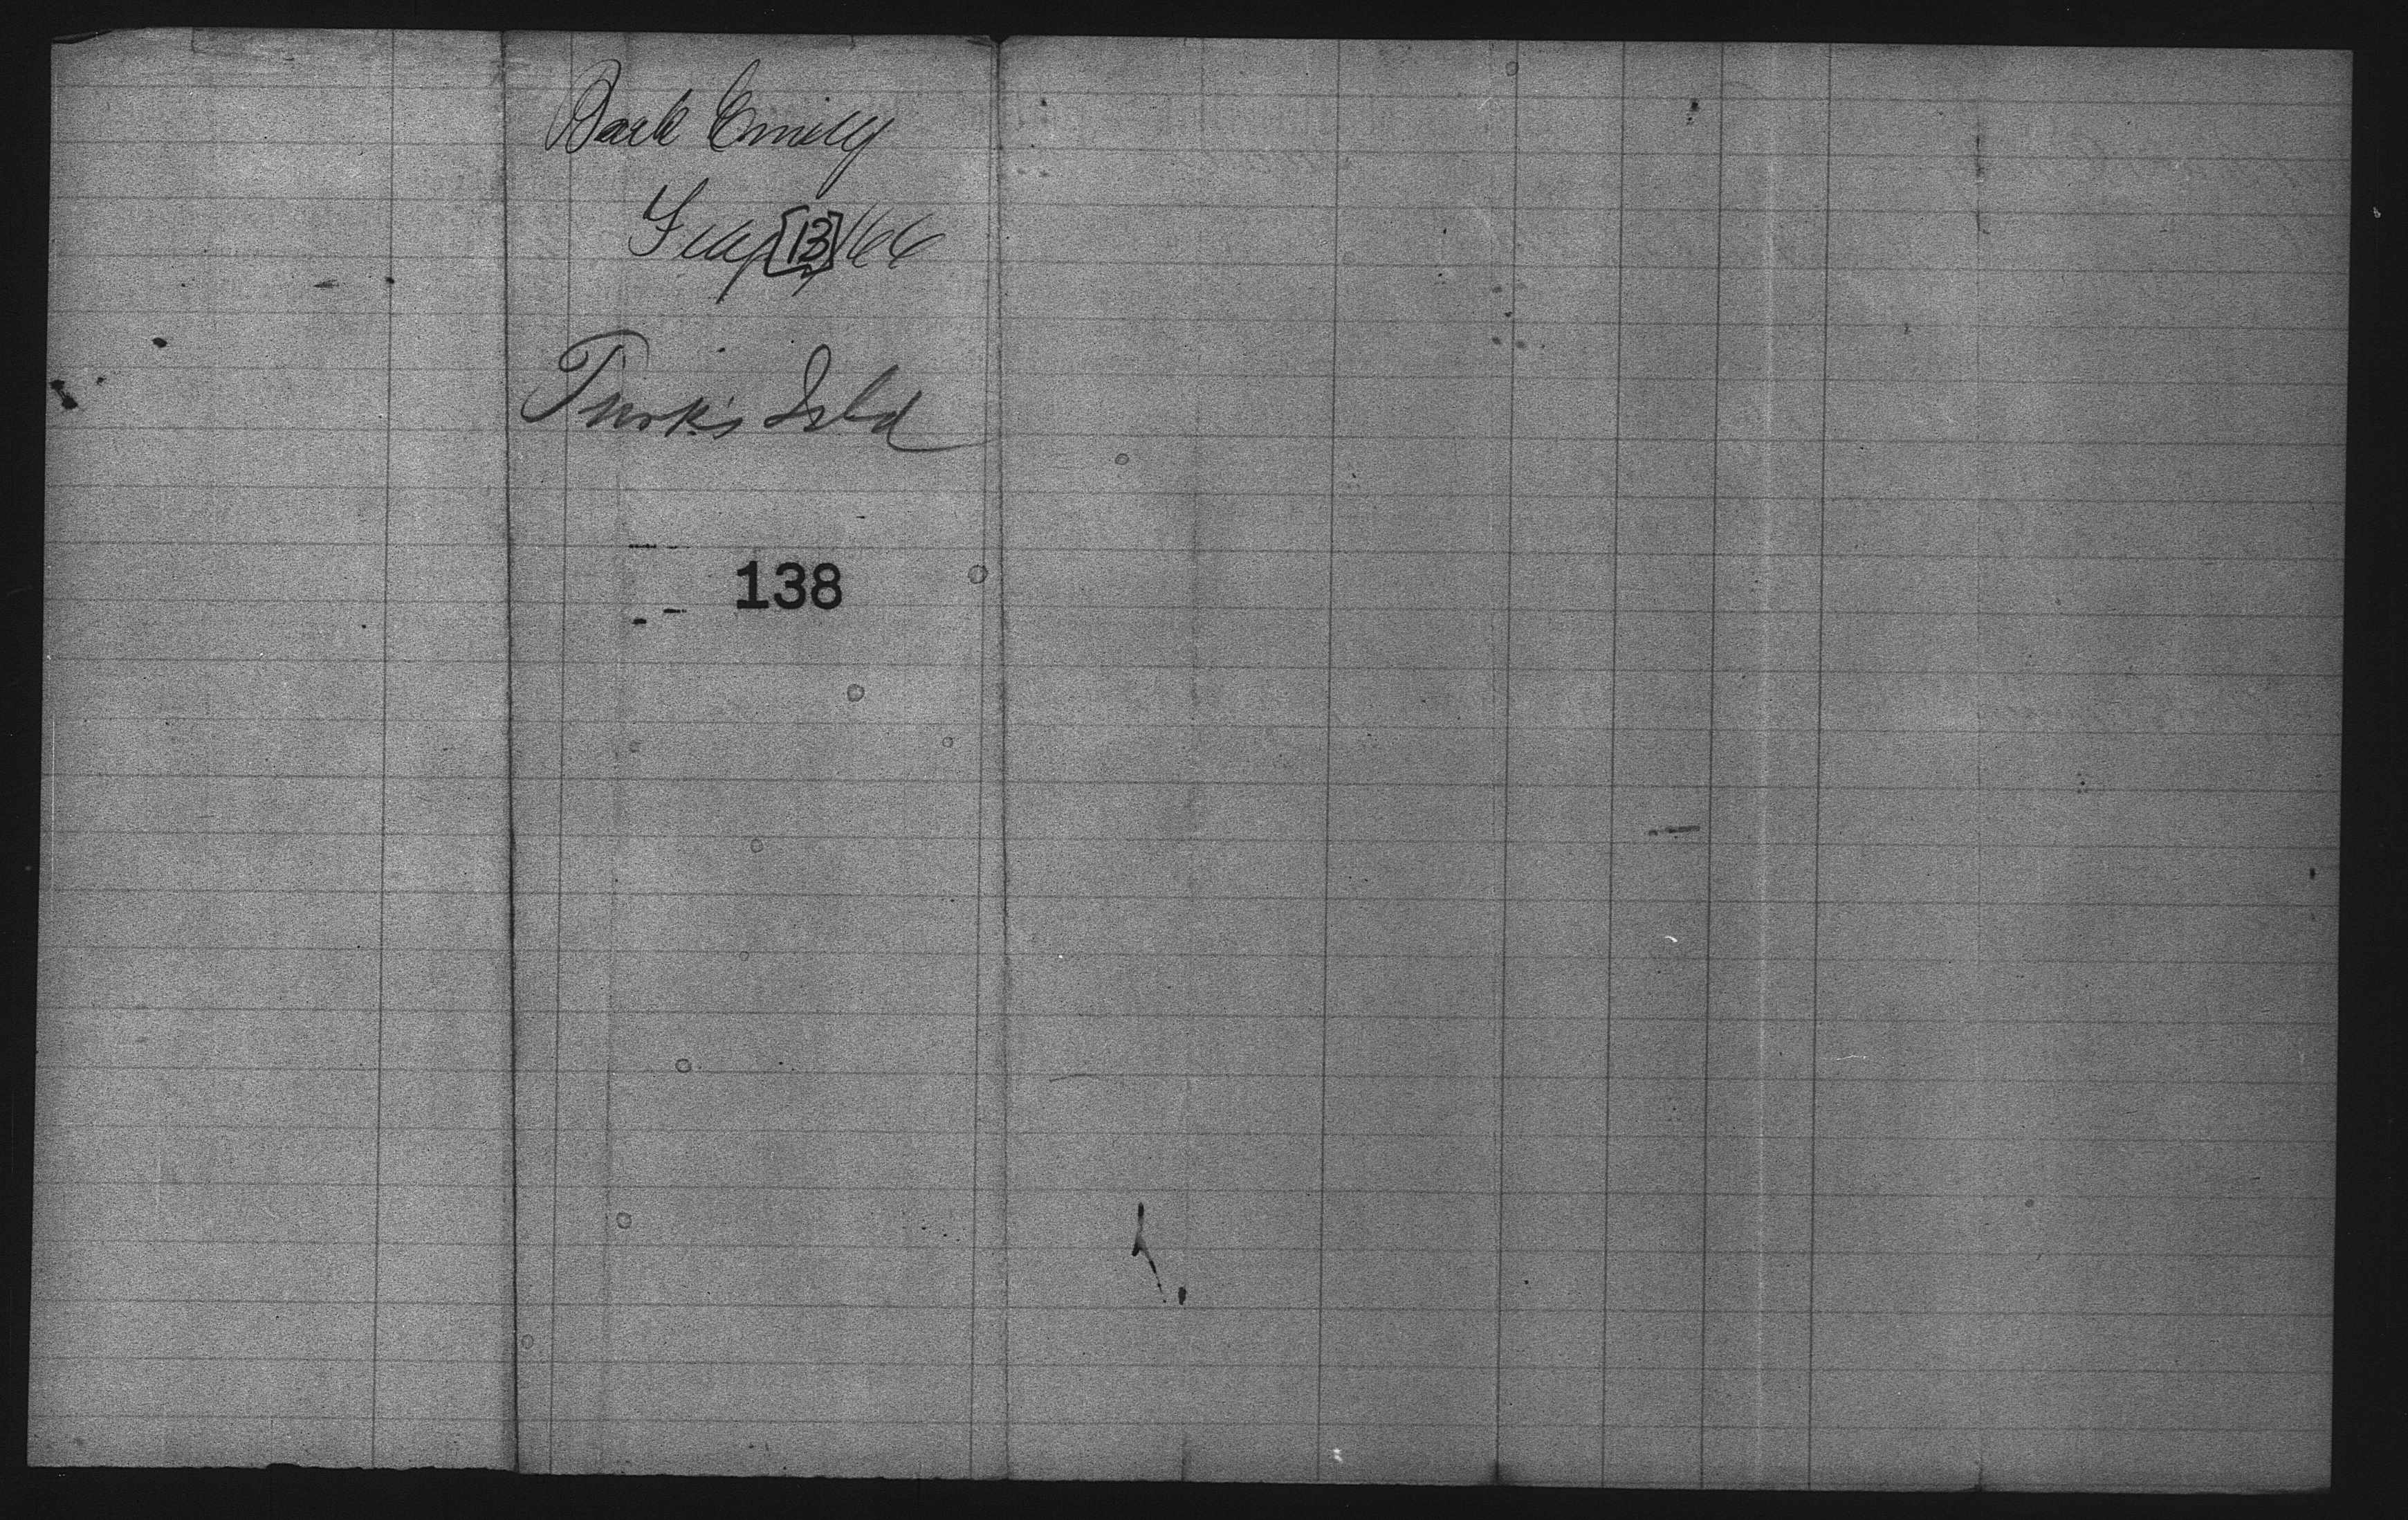 Bark Emily
Sep [13] /66
Turk's Isld
138